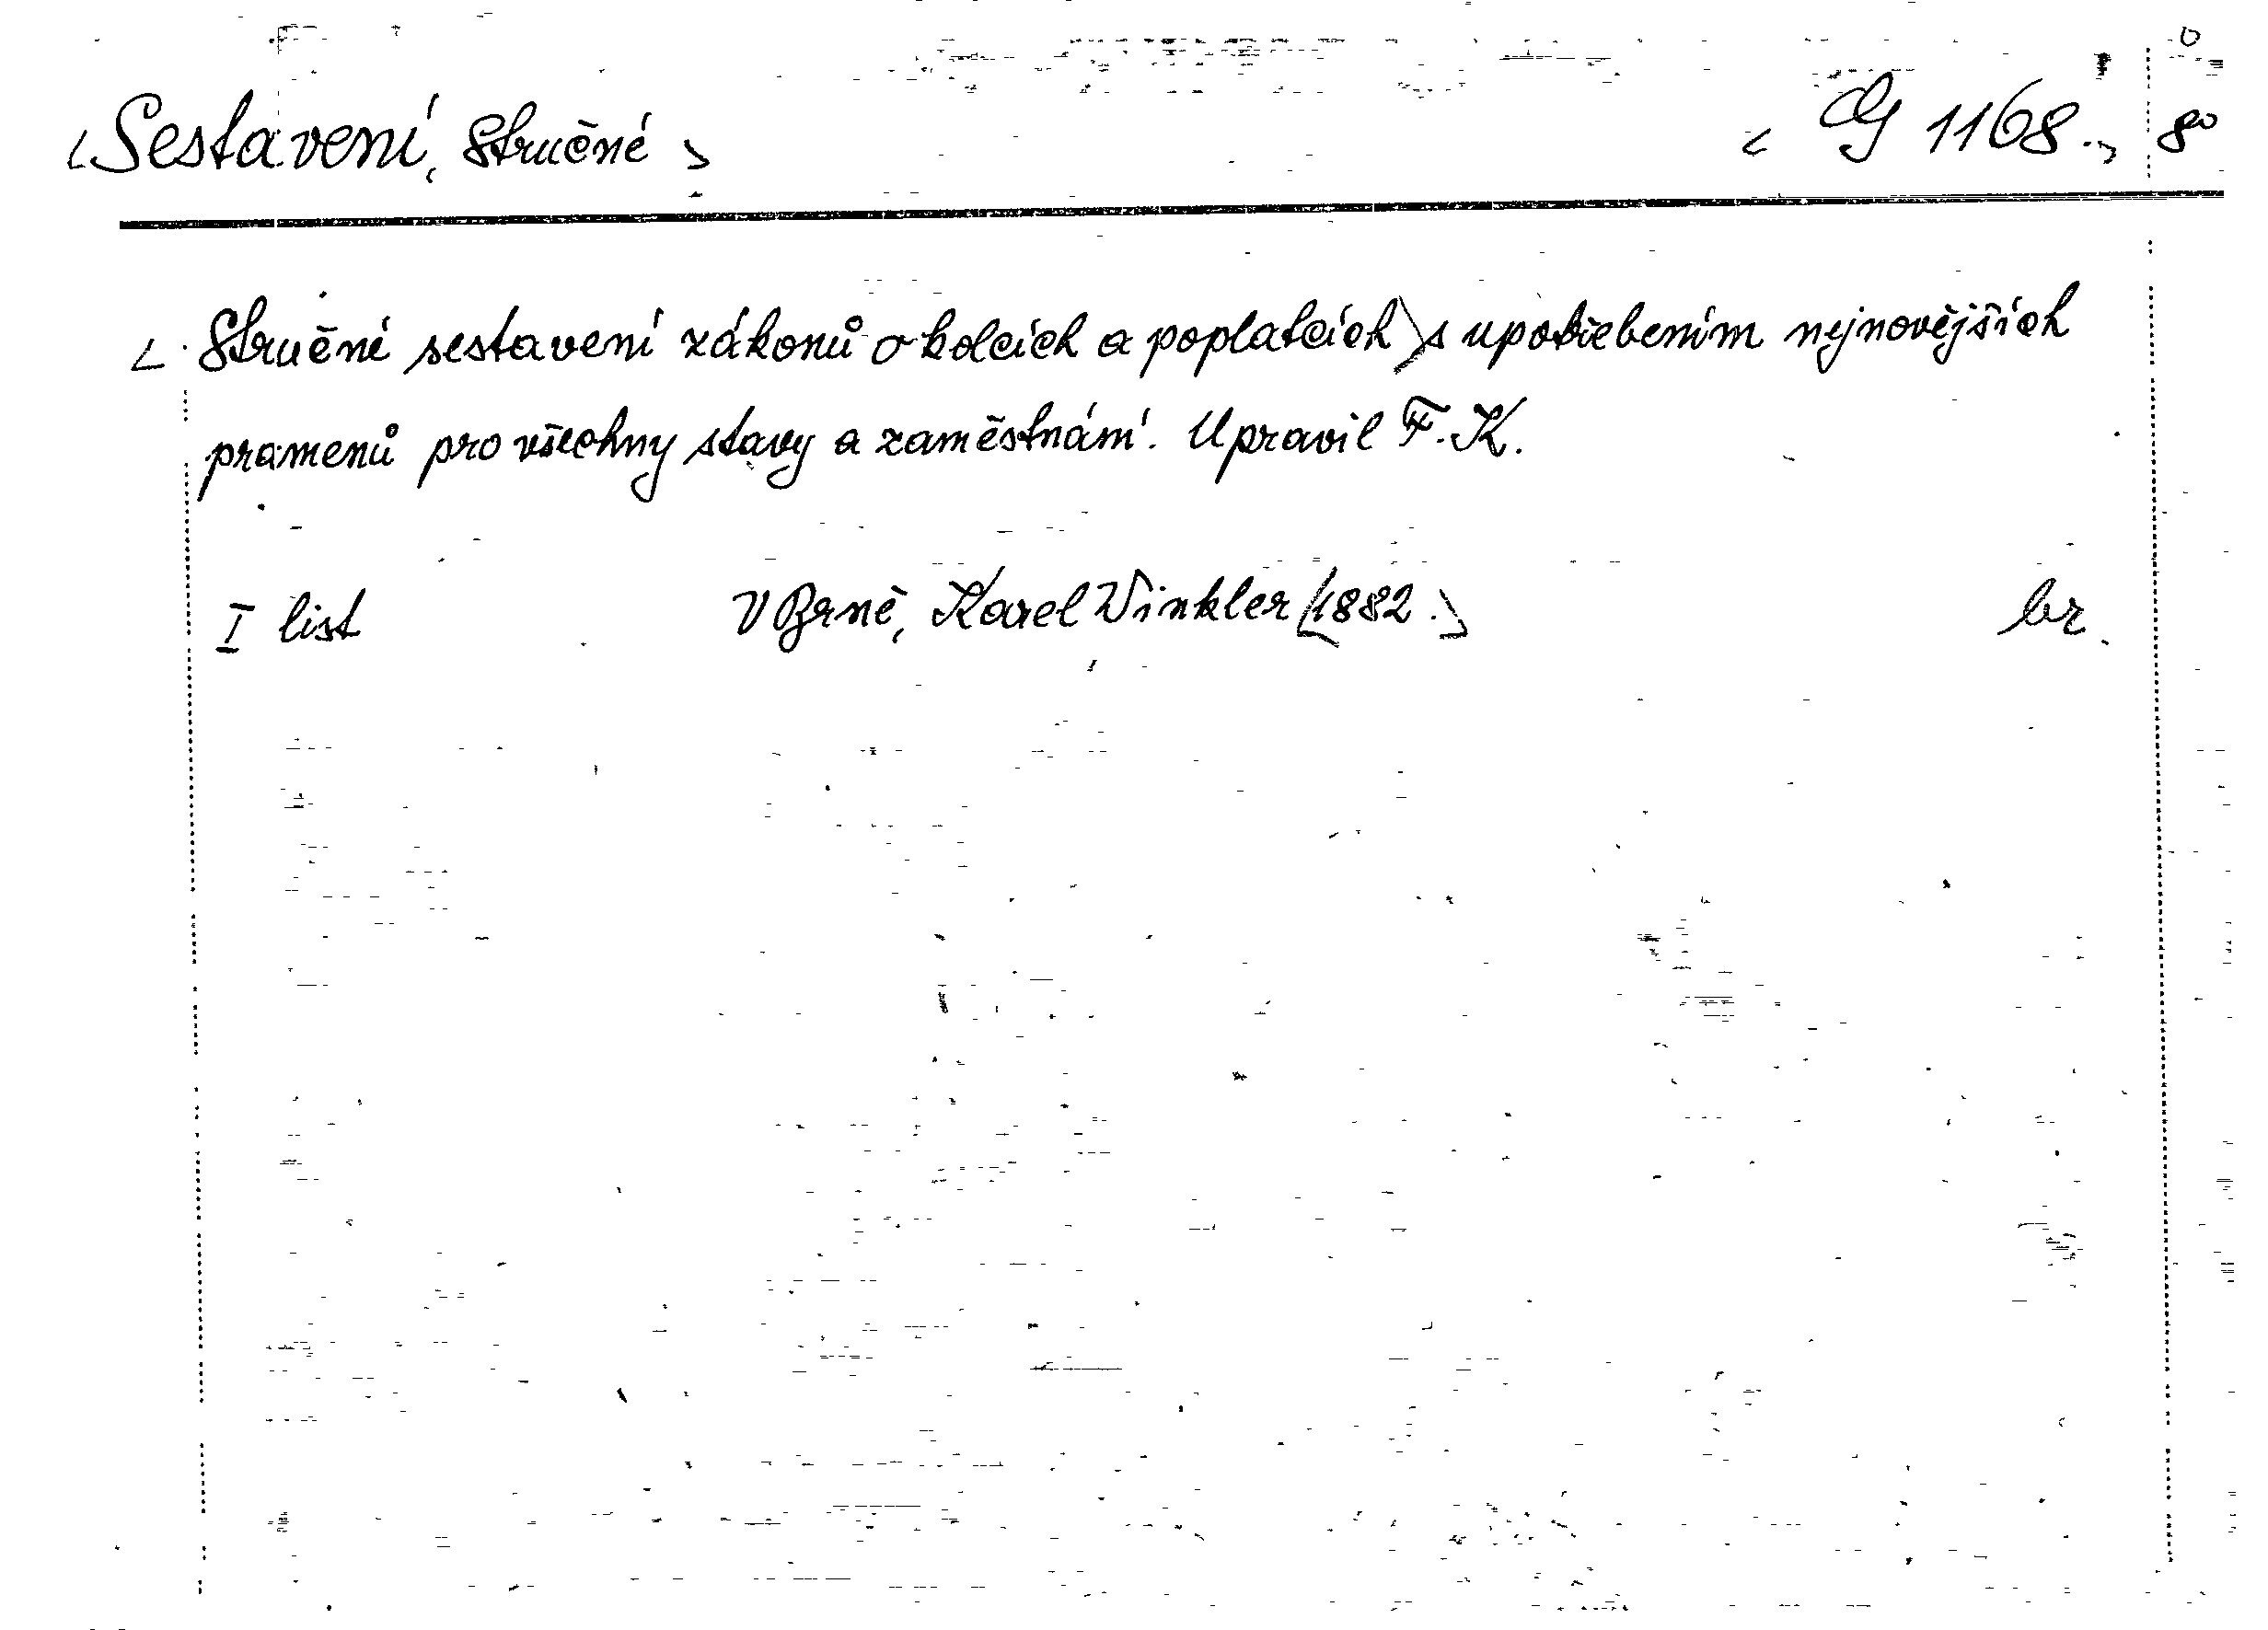 <Sestavení, Stručné> <G 1168.> 8°
<Stručné sestavení zákonů o kolcích a poplatcích> s upotřebením nejnovějších
pramenů pro všechny stavy a zaměstnání. Upravil F. K.
I list V Brně, Karel Winkler <1882.> br.